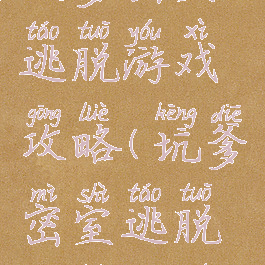 táo tuō yóu xì
逃脱游戏
gōng lüè kēng diē
攻略(坑爹
mì shì táo tuō
密室逃脱